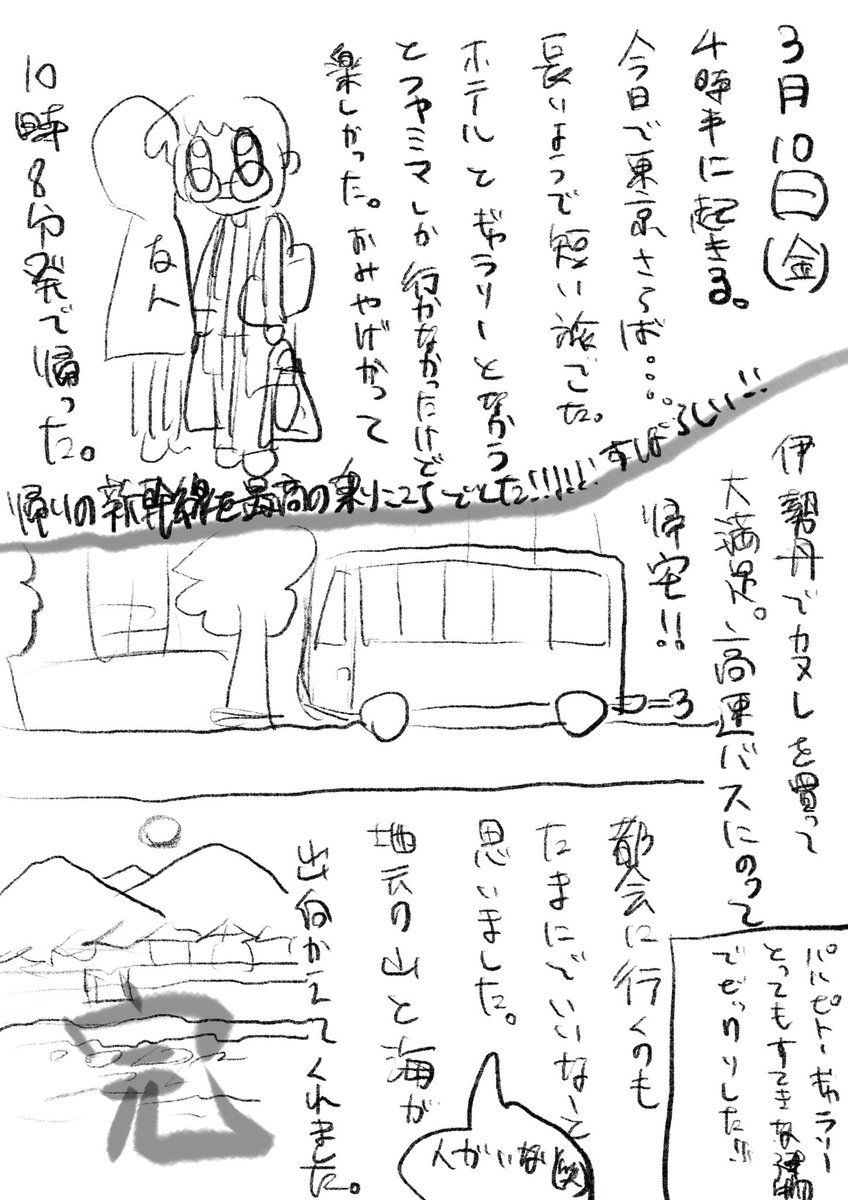 3月10日(金)
4時半に起きる。
今日で東京さらば…。
長いようで短い旅でした。
ホテルとギャラリーとなかう
とファミマしか行かなかったけど
楽しかった。おみやげかって
10時8分発で帰った。
なん
帰りの新幹線も最高の乗りごこちでした!!!!!! すばらしい!!
伊勢丹でカヌレを買って
大満足。高速バスにのって
帰宅!!
都会に行くのも
たまにでいいなーと
思いました。
地元の山と海が
出向かえてくれました。
人がいない(笑)
パルピトーギャラリー
とってもすてきな建物
でびっくりした!!
完